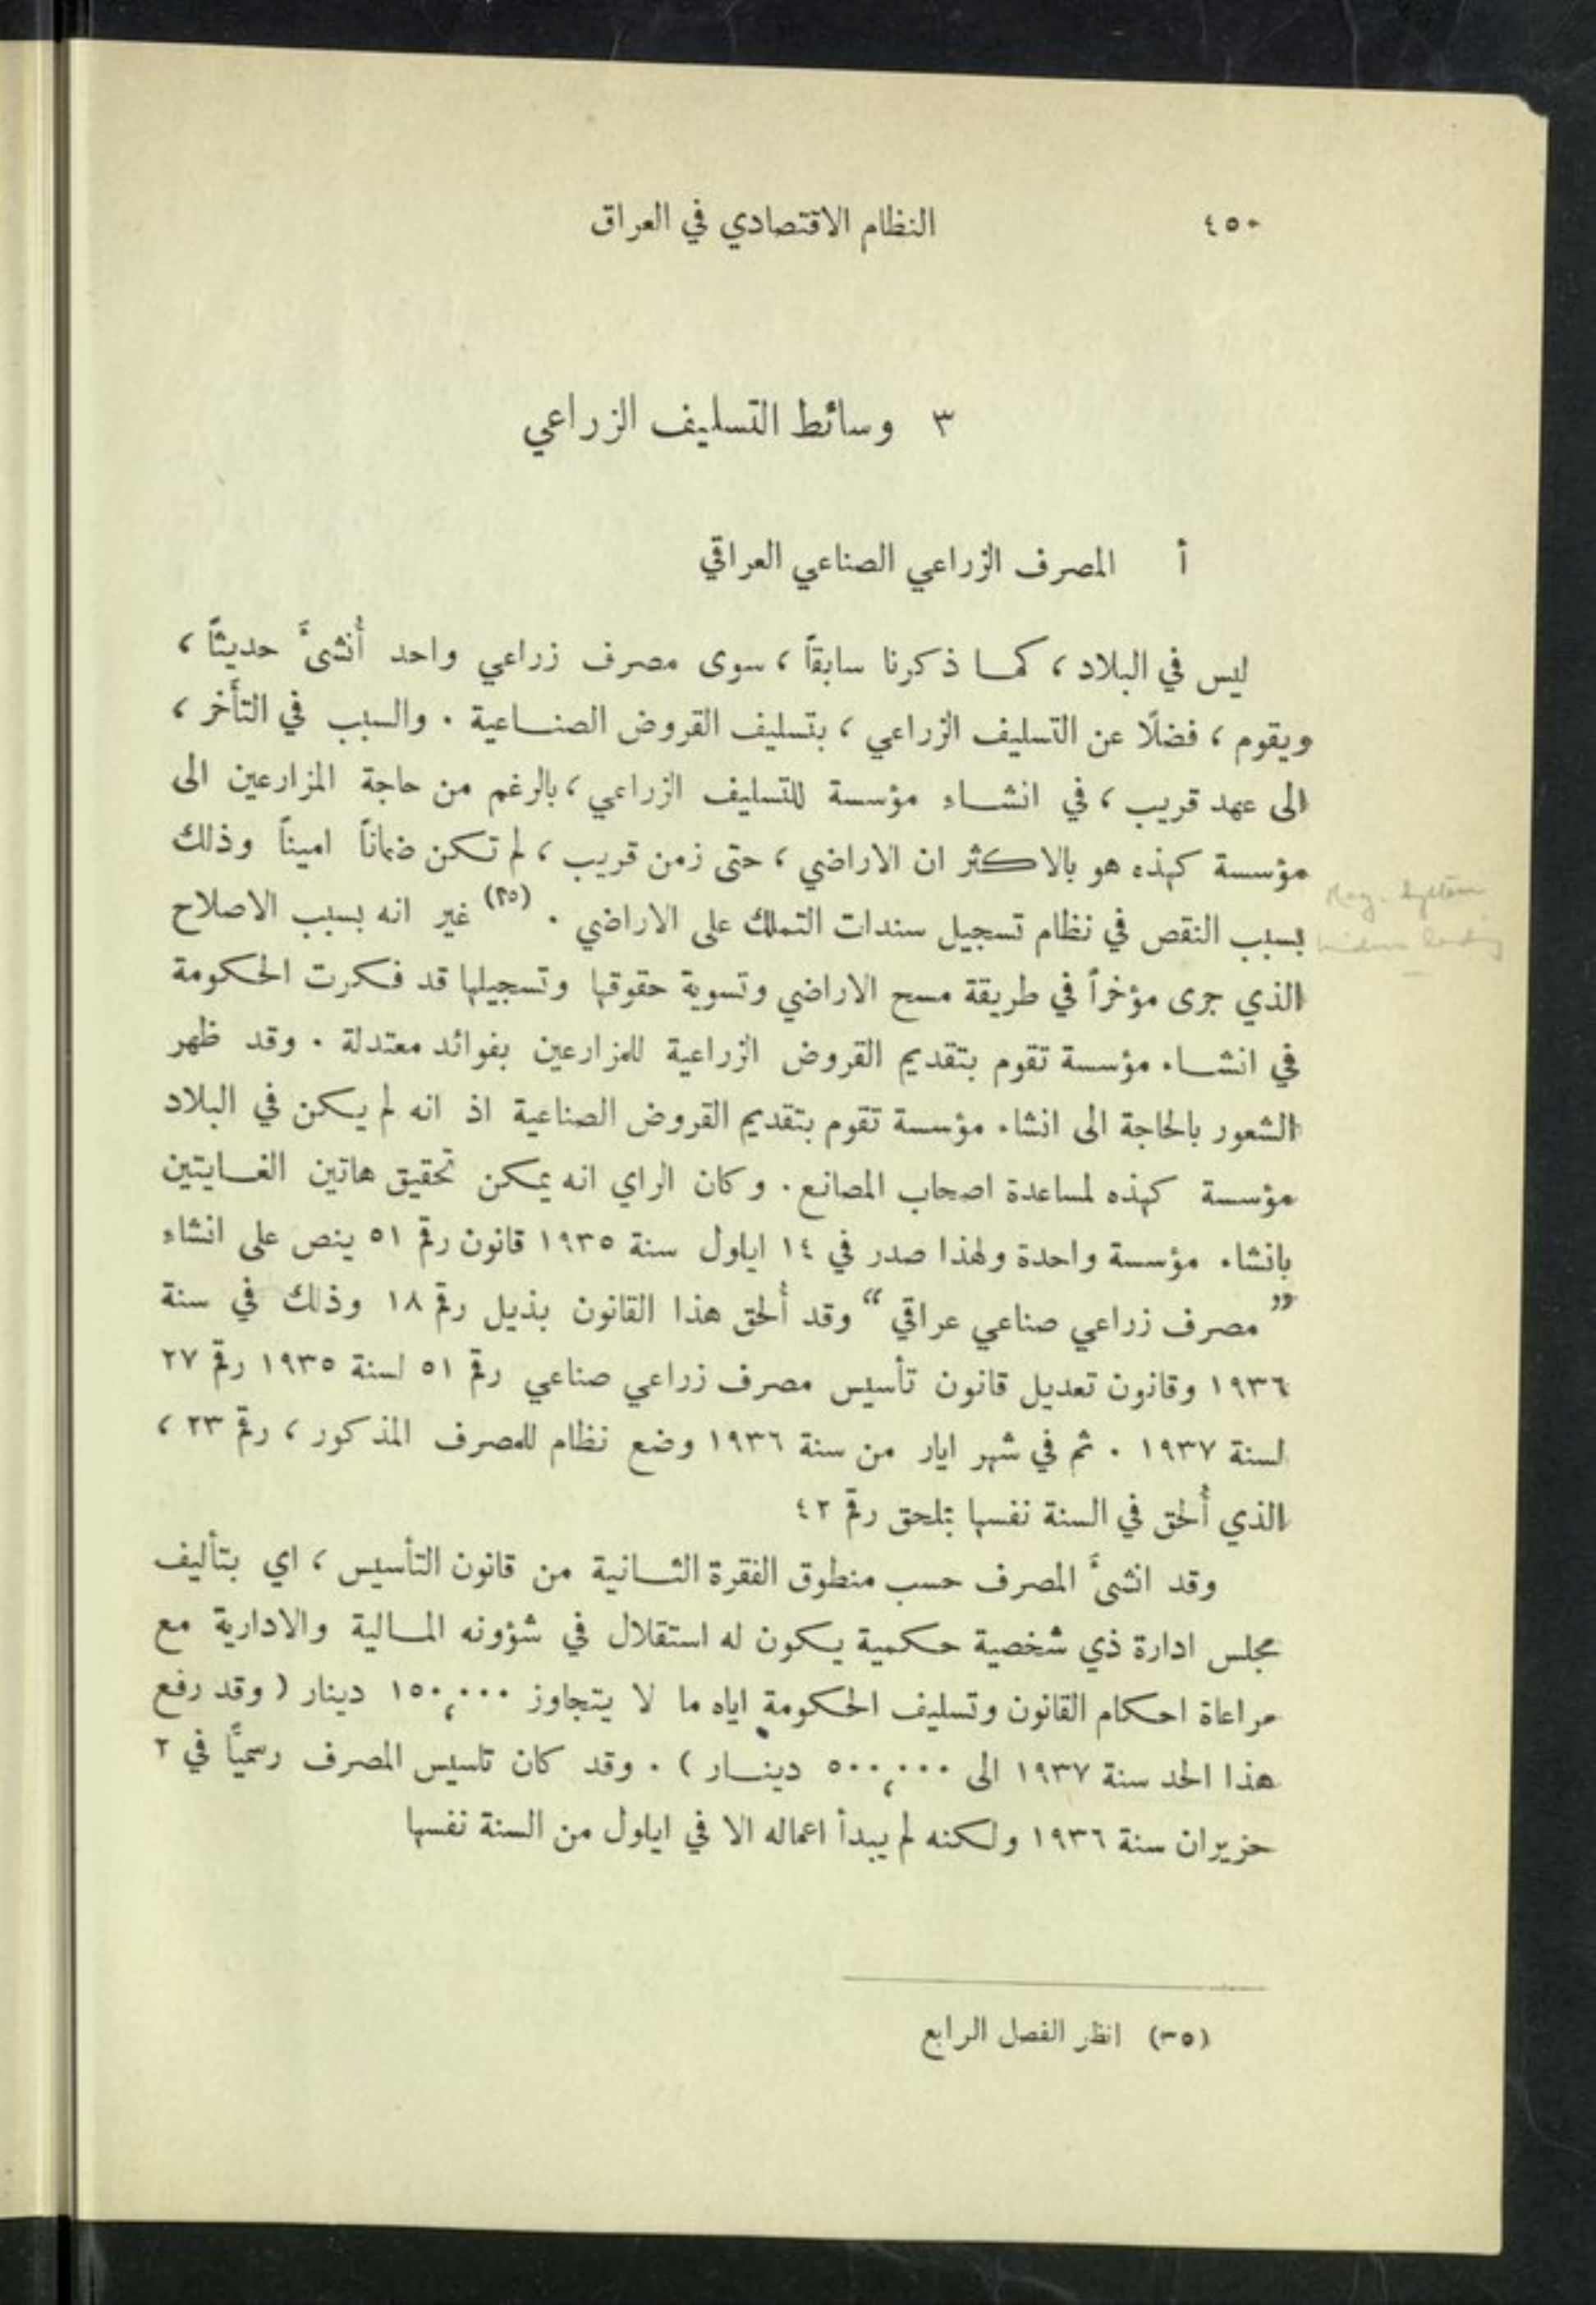 ٤٥٠
النظام الاقتصادي في العراق
٣ وسائط التسليف الزراعي
أ المصرف الزراعي الصناعي العراقي
ليس في البلاد ، كما ذكرنا سابقاً ، سوى مصرف زراعي واحد أُنشئَ حديثاً ،
ويقوم ، فضلًا عن التسليف الزراعي ، بتسليف القروض الصناعية . والسبب في التأخر ،
الى عهد قريب ، في انشاء مؤسسة للتسليف الزراعي ، بالرغم من حاجة المزارعين الى
مؤسسة كهذه هو بالاكثر ان الاراضي ، حتى زمن قريب ، لم تكن ضماناً اميناً وذلك
بسبب النقص في نظام تسجيل سندات التملك على الاراضي . (٣٥) غير انه بسبب الاصلاح
الذي جرى مؤخراً في طريقة مسح الاراضي وتسوية حقوقها وتسجيلها قد فكرت الحكومة
في انشاء مؤسسة تقوم بتقديم القروض الزراعية للمزارعين بفوائد معتدلة . وقد ظهر
الشعور بالحاجة الى انشاء مؤسسة تقوم بتقديم القروض الصناعية اذ انه لم يكن في البلاد
مؤسسة كهذه لمساعدة اصحاب المصانع . وكان الراي انه يمكن تحقيق هاتين الغايتين
بانشاء مؤسسة واحدة ولهذا صدر في ١٤ ايلول سنة ١٩٣٥ قانون رقم ٥١ ينص على انشاء
” مصرف زراعي صناعي عراقي “ وقد أُلحق هذا القانون بذيل رقم ١٨ وذلك في سنة
١٩٣٦ وقانون تعديل قانون تأسيس مصرف زراعي صناعي رقم ٥١ لسنة ١٩٣٥ رقم ٢٧
لسنة ١٩٣٧ . ثم في شهر ايار من سنة ١٩٣٦ وضع نظام للمصرف المذكور ، رقم ٢٣ ،
الذي أُلحق في السنة نفسها بملحق رقم ٤٢
وقد انشئَ المصرف حسب منطوق الفقرة الثانية من قانون التأسيس ، اي بتأليف
مجلس ادارة ذي شخصية حكمية يكون له استقلال في شؤونه المالية والادارية مع
مراعاة احكام القانون وتسليف الحكومة اياه ما لا يتجاوز ١٥٠,٠٠٠ دينار ( وقد رفع
هذا الحد سنة ١٩٣٧ الى ٥٠٠,٠٠٠ دينار ) . وقد كان تاسيس المصرف رسميًّا في ٢
حزيران سنة ١٩٣٦ ولكنه لم يبدأ اعماله الا في ايلول من السنة نفسها
(٣٥) انظر الفصل الرابع